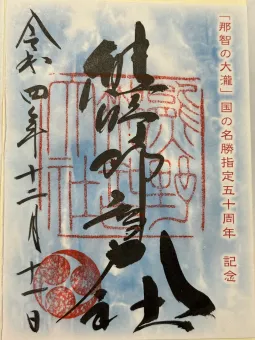 「那智の大瀧」国の名勝指定五十周年 記念
熊野那智大社
令和四年十二月十一日